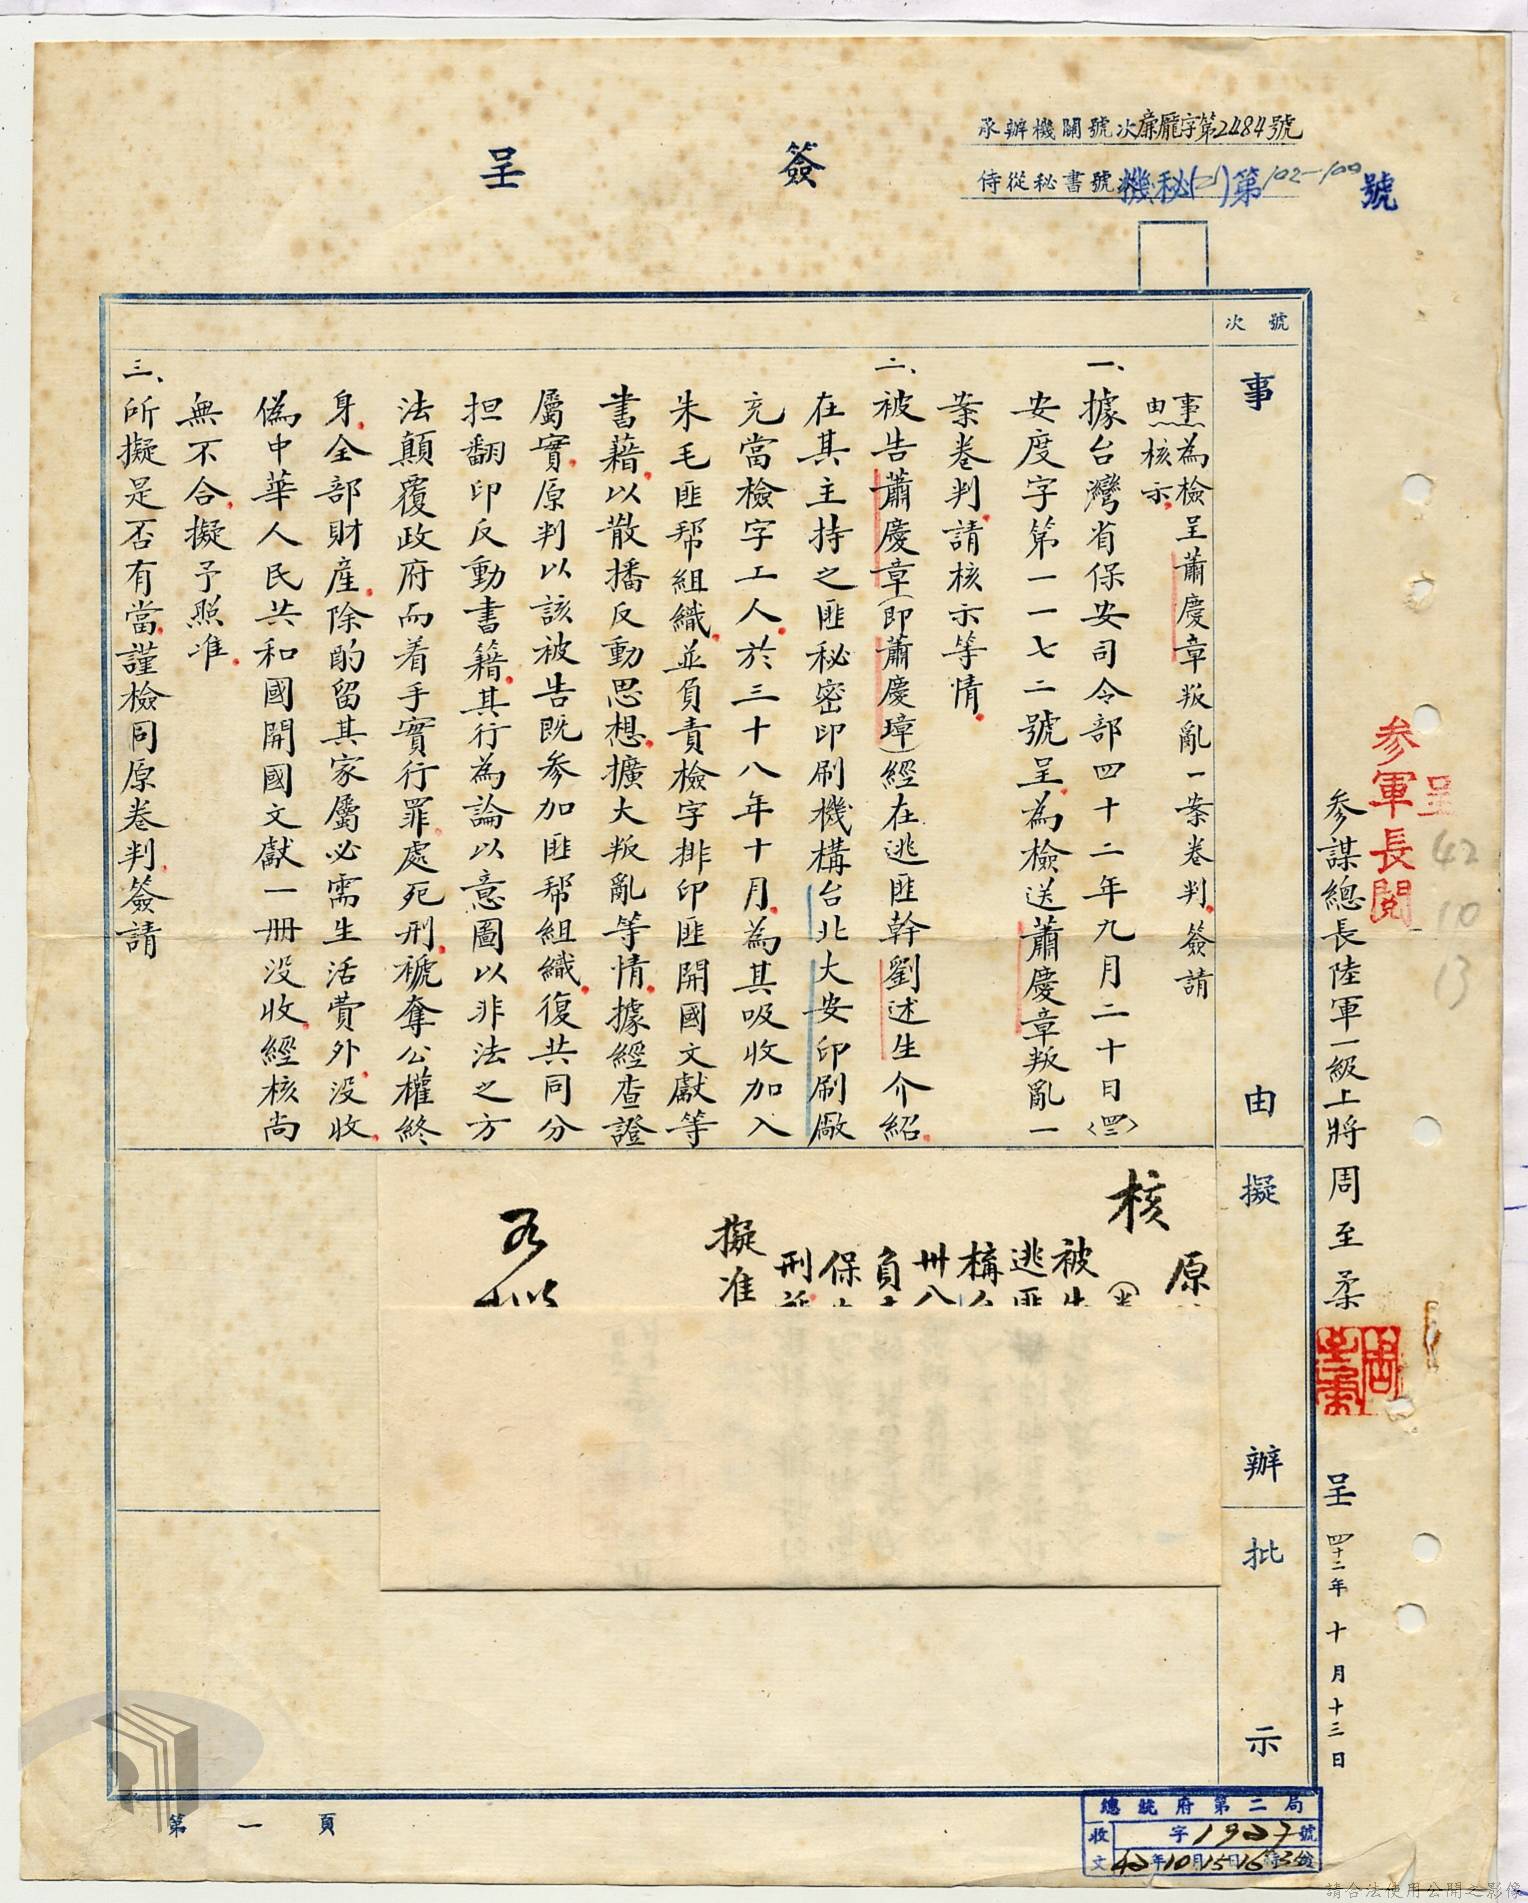 簽呈
承辦機關號次廉龐字第2484號
侍從秘書號次機秘(乙)第102-100號
號次
事由
事由:為檢呈蕭慶章叛亂一案卷判簽請
核示
一、據台灣省保安司令部四十二年九月二十日〈四二〉
安度字第一一七二號呈為檢送蕭慶章叛亂一
案卷判請核示等情
二、被告蕭慶章(即蕭慶璋)經在逃匪幹劉述生介紹
在其主持之匪秘密印刷機構台北大安印刷廠
充當檢字工人於三十八年十月為其吸收加入
朱毛匪幫組織並負責檢字排印匪開國文獻等
書藉以散播反動思想擴大叛亂等情據經查證
屬實原判以該被告既參加匪幫組織復共同分
担翻印反動書籍其行為論以意圖以非法之方
法顛覆政府而着手實行罪處死刑褫奪公權終
身全部財產除酌留其家屬必需生活費外没收
偽中華人民共和國開國文獻一册没收經核尚
無不合擬予照准
三、所擬是否有當謹檢同原卷判簽請
擬辦
核
原
被
逃匪
構
卅八
負
保
刑
擬准
批示
參謀總長陸軍一級上將周至柔
呈
四十二年十月十三日
參軍長閱
呈
42
10
13
第一頁
總統府第二局
收文 字1927號
42年10月15日16時35分
請合法使用公開之影像